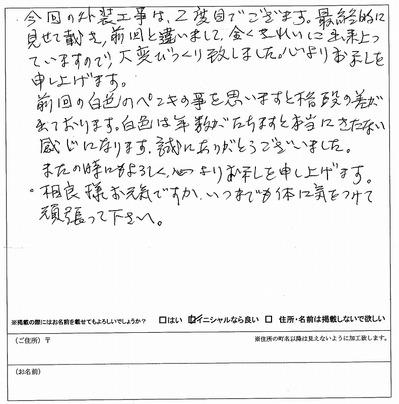 ・今回の外装工事は、2度目でございます。最終的に
見せて戴き、前回と違いまして、全くきれいに出来上っ
ていますので大変びっくり致しました。心よりお礼を
申し上げます。
前回の白色のペンキの事を思いますと格段の差が
出ております。白色は年数がたちますと本当にきたない
感じになります。誠にありがとうございました。
またの時にもよろしく、心よりお礼を申し上げます。
・相良様お元気ですか、いつまでも体に気をつけて
頑張って下さい。
※掲載の際にはお名前を載せてもよろしいでしょうか? □はい ☑イニシャルなら良い □住所・名前は掲載しないで欲しい
(ご住所) 〒 ※住所の町名以降は見えないように加工致します。
(お名前)